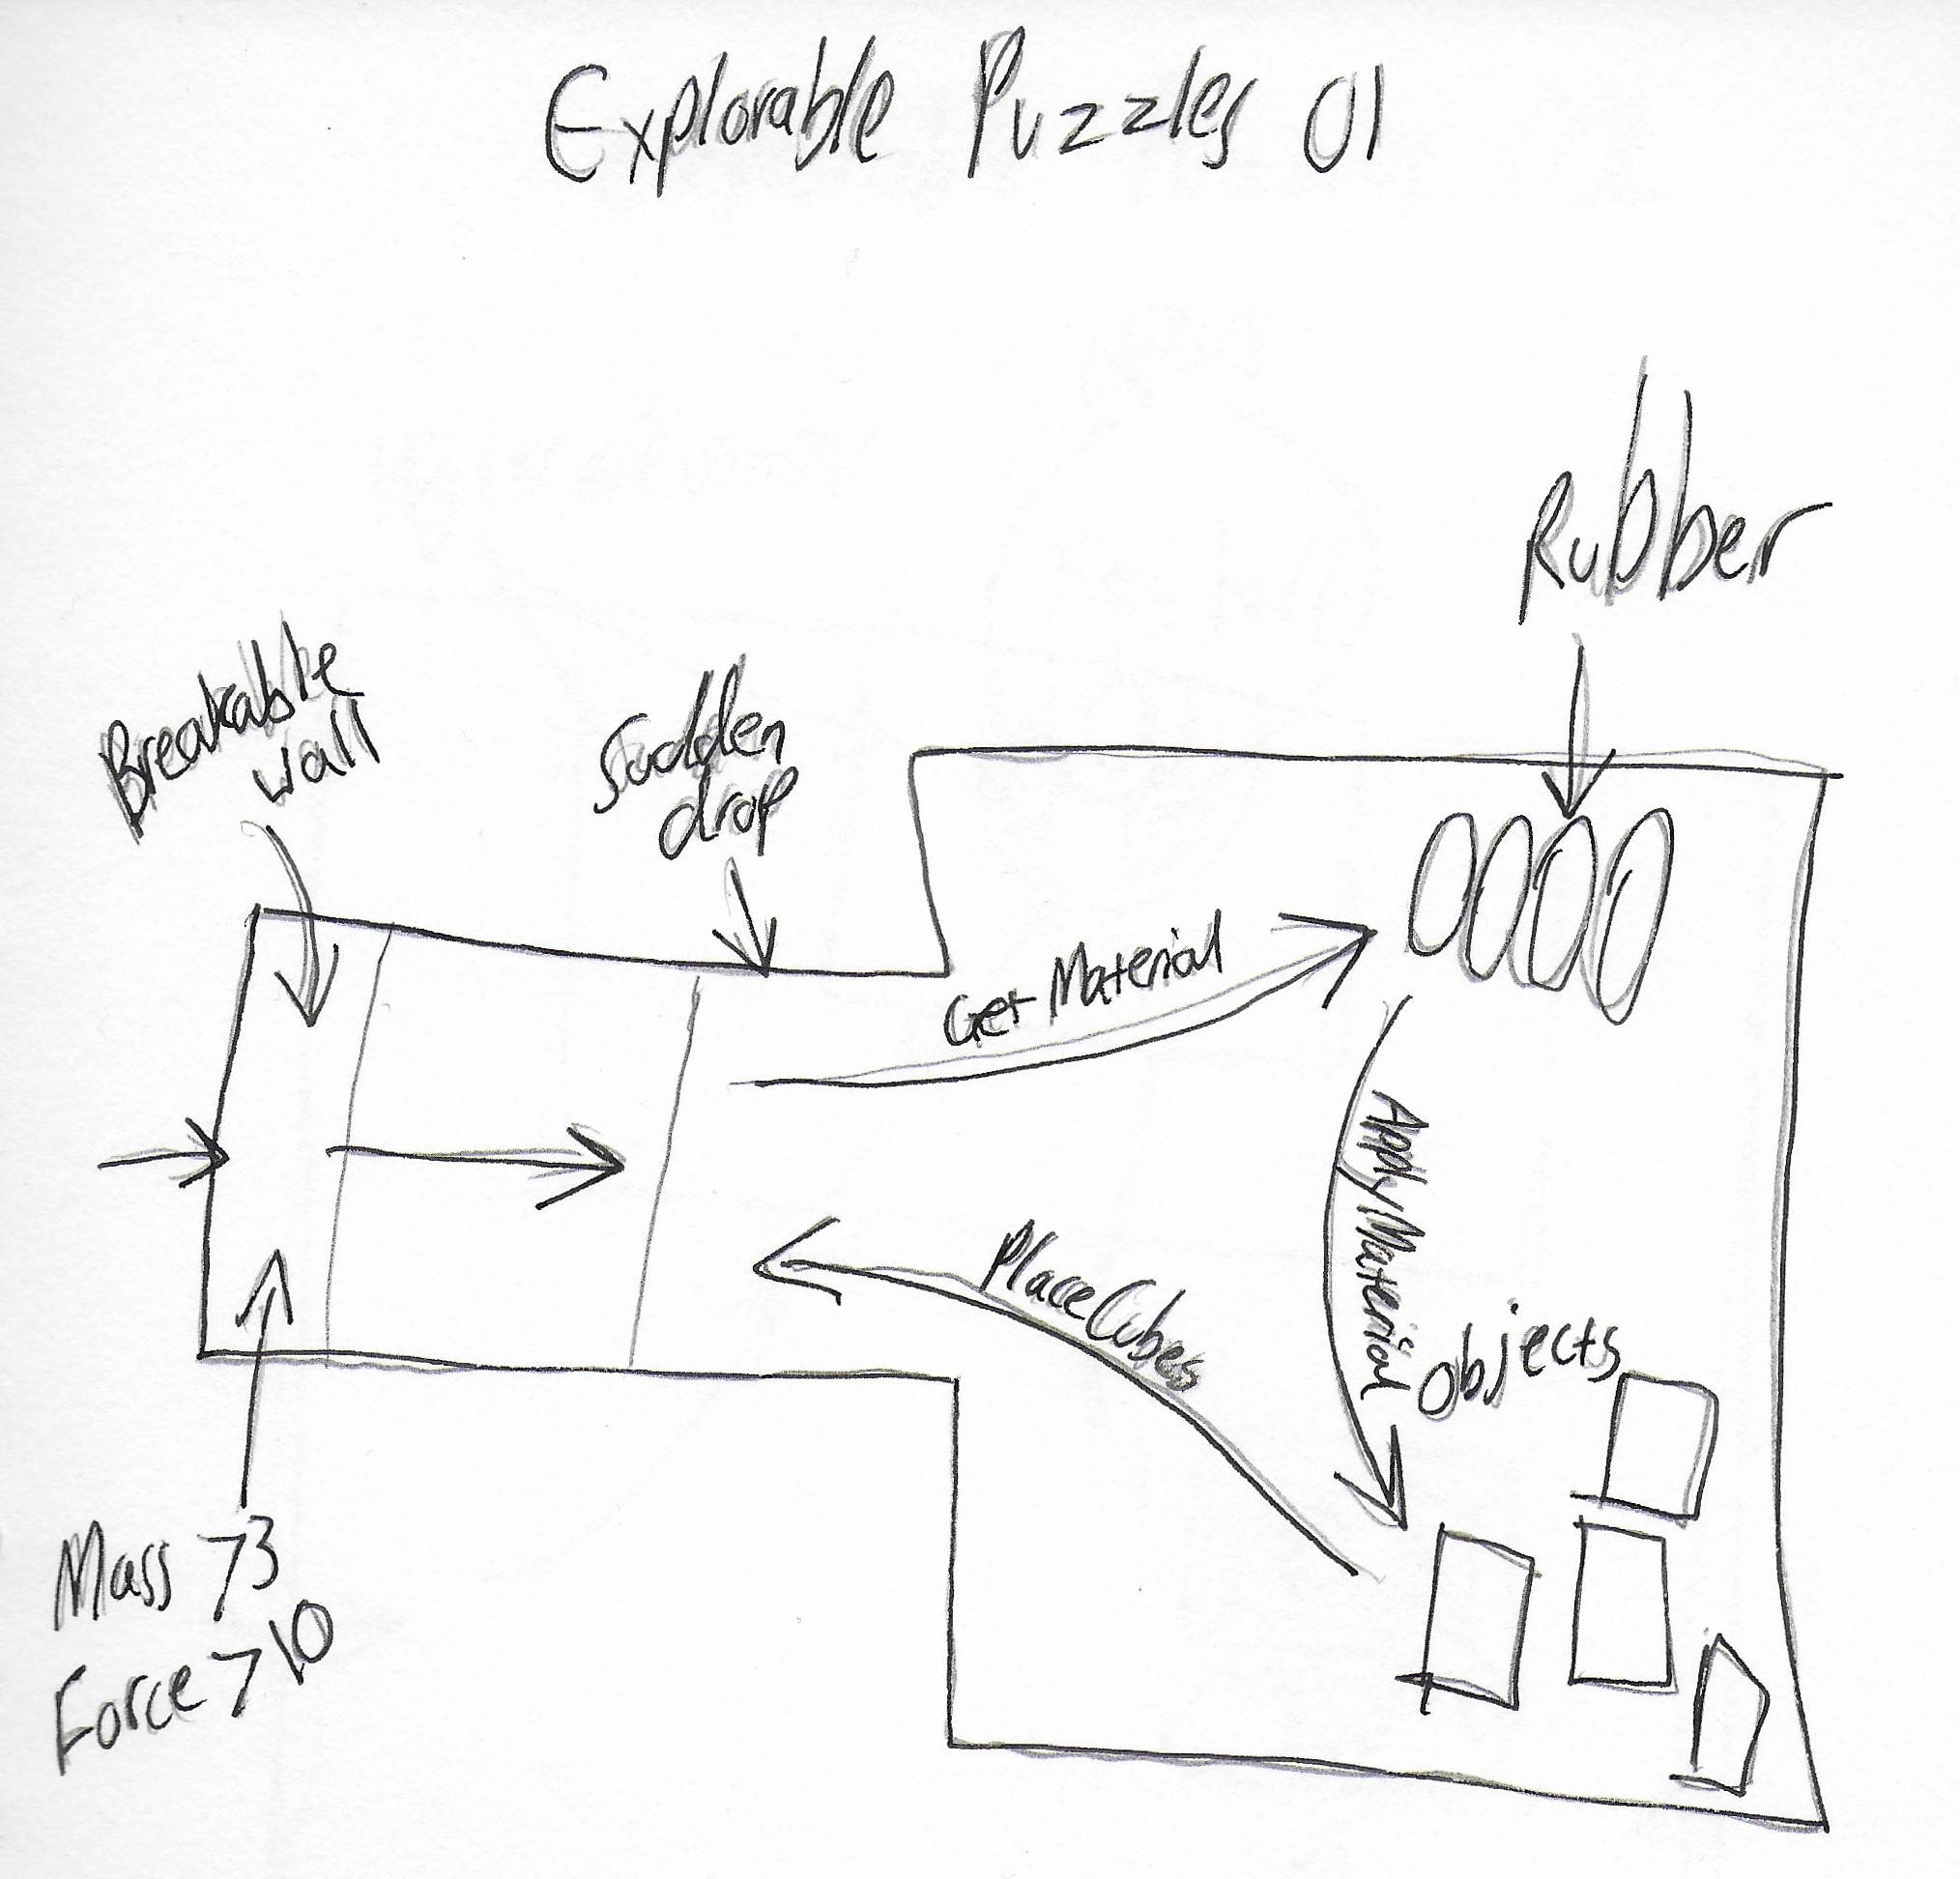 Explorable Puzzles 01
Rubber
Breakable
wall
Sudden
drop
Get Material
Apply Material
Place Cubes
Objects
Mass >3
Force >10